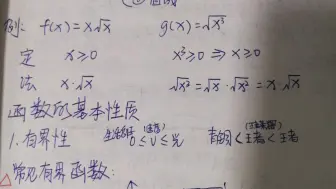 例: f(x)=x√x g(x)=√x³
定 x≥0 x³≥0 ⇒ x≥0
法 x·√x √x³=√x·√x²=x·√x
函数的基本性质
1.有界性 0≤v≤光 青铜<王者<王者
常见有界函数: